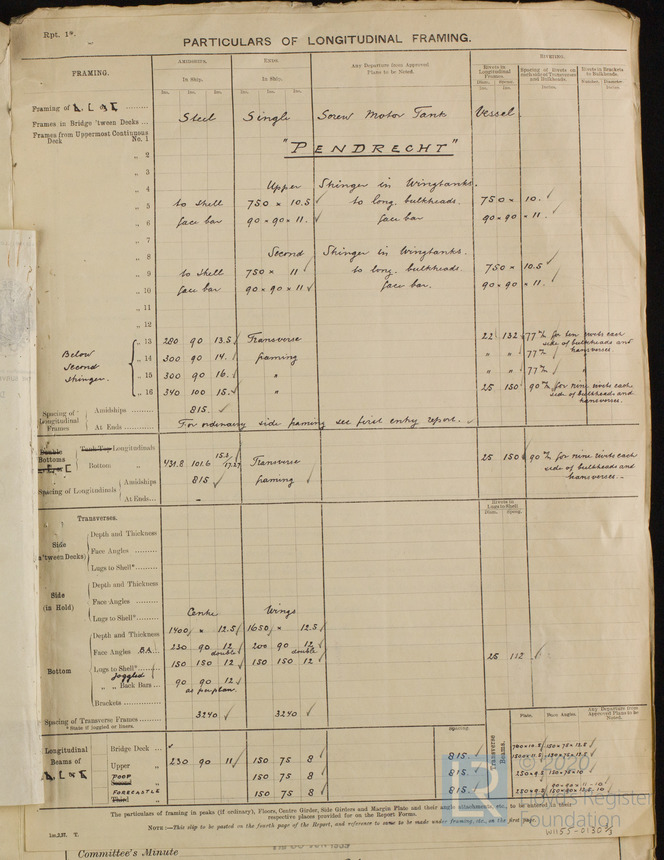 Rpt. 1*.
PARTICULARS OF LONGITUDINAL FRAMING.
FRAMING.
AMIDSHIPS. ENDS. Any Departure from Approved Plans to be Noted. RIVETING.
In Ship. In Ship.
Rivets in Longitudinal Frames. Spacing of Rivets on each side of Transverses and Bulkheads. Rivets in Brackets to Bulkheads.
Ins. Ins. Ins. Ins. Ins. Ins. Diam. Ins. Spacing. Ins. Inches. Number. Diameter. Inches.
Framing of
Frames in Bridge 'tween Decks ... Steel Single Screw Motor Tank Vessel.
Frames from Uppermost Continuous Deck No. 1
"PENDRECHT"
„ 2
„ 3
„ 4 Upper Stringer in Wingtanks.
„ 5 to shell 750 × 10.5 to long. bulkheads. 750 × 10.
„ 6 face bar 90 × 90 × 11. face bar 90 × 90 × 11.
„ 7
„ 8 Second Stringer in Wingtanks.
„ 9 to shell 750 × 11 to long. bulkheads. 750 × 10.5
„ 10 face bar 90 × 90 × 11 face bar. 90 × 90 × 11.
„ 11
„ 12
Below Second Stringer.
„ 13 280 90 13.5 Transverse 22 132 77 m/m for ten rivets each side of bulkheads and transverses.
„ 14 300 90 14. framing " " 77 m/m "
„ 15 300 90 16. " " " 77 m/m "
„ 16 340 100 15. " 25 150 90 m/m for nine rivets each side of bulkheads and transverses.
Spacing of Longitudinal Frames
Amidships 815.
At Ends .......... For ordinary side framing see first entry report.
Double Bottoms
Tank Top Longitudinals
Bottom „ 431.8 101.6 15.2/17.27 Transverse framing 25 150 90 m/m for nine rivets each side of bulkheads and transverses.
Spacing of Longitudinals
Amidships 815
At Ends... –
Transverses.
Rivets in Lugs to Shell
Diam. Spcng.
Side ('tween Decks)
Depth and Thickness
Face Angles .........
Lugs to Shell* .......
Side (in Hold)
Depth and Thickness
Face Angles .........
Lugs to Shell* .......
Centre Wings
Bottom
Depth and Thickness 1400 × 12.5 1650 × 12.5
Face Angles B.A. 230 90 12 double 200 90 12 double
Lugs to Shell* joggled 150 150 12 150 150 12 25 112
„ „ Back Bars ... 90 90 12 as per plan.
Brackets .........
Spacing of Transverse Frames ........ 3240 3240
* State if joggled or liners.
Spacing
Transverse Beams.
Plate. Face Angles. Any Departure from Approved Plans to be Noted.
Longitudinal Beams of
Bridge Deck ...
Upper „ 230 90 11 150 75 8 815.
POOP „ 150 75 8 815. 250×9.5 150×75×10
FORECASTLE „ 150 75 8 815.
The particulars of framing in peaks (if ordinary), Floors, Centre Girder, Side Girders and Margin Plate and their angle attachments, etc., to be entered in their respective places provided for on the Report Forms.
NOTE:—This slip to be pasted on the fourth page of the Report, and reference to same to be made under framing, etc., on the first page.
© 2020
Lloyd's Register Foundation
W1155-0130
Committee's Minute